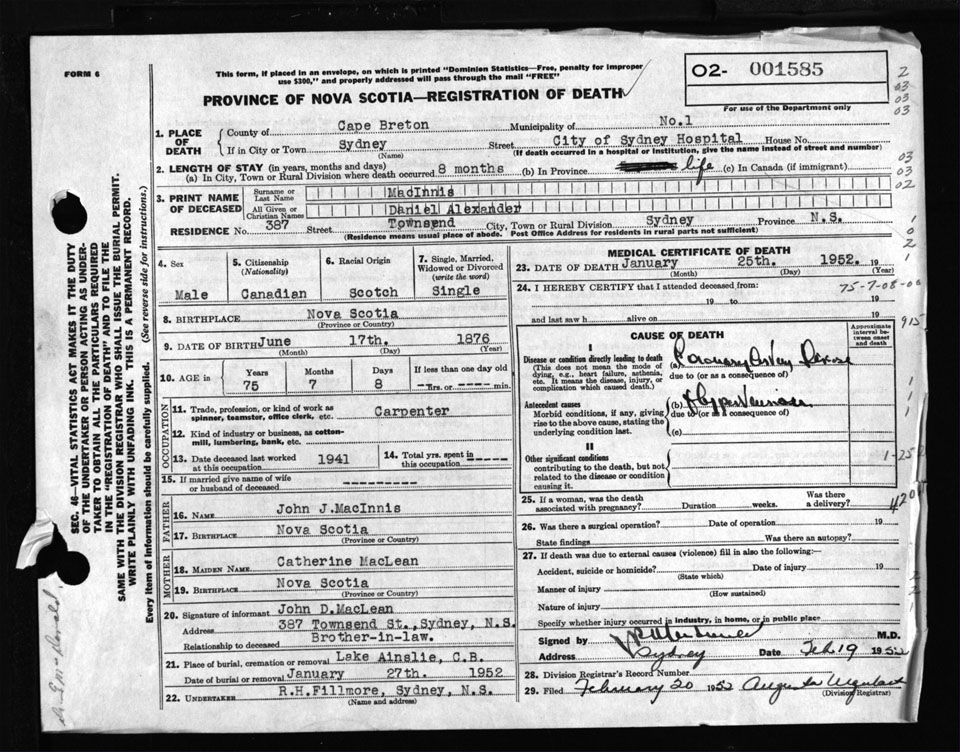 FORM 6
This form, if placed in an envelope, on which is printed "Dominion Statistics—Free, penalty for improper
use $300," and properly addressed will pass through the mail "FREE"
PROVINCE OF NOVA SCOTIA—REGISTRATION OF DEATH
O2- 001585
For use of the Department only
1. PLACE OF DEATH
County of Cape Breton Municipality of No.1
If in City or Town Sydney Street City of Sydney Hospital House No.
(Name) (If death occurred in a hospital or institution, give the name instead of street and number)
2. LENGTH OF STAY (in years, months and days)
(a) In City, Town or Rural Division where death occurred 8 months (b) In Province life (c) In Canada (if immigrant)
3. PRINT NAME OF DECEASED
Surname or Last Name MacInnis
All Given or Christian Names Daniel Alexander
RESIDENCE No. 387 Street Townsend City, Town or Rural Division Sydney Province N.S.
(Residence means usual place of abode. Post Office Address for residents in rural parts not sufficient)
4. Sex
Male
5. Citizenship
(Nationality)
Canadian
6. Racial Origin
Scotch
7. Single, Married, Widowed or Divorced
(write the word)
Single
8. BIRTHPLACE Nova Scotia
(Province or Country)
9. DATE OF BIRTH June 17th. 1876
(Month) (Day) (Year)
10. AGE in
Years Months Days If less than one day old
75 7 8 hrs. or min.
OCCUPATION
11. Trade, profession, or kind of work as
spinner, teamster, office clerk, etc. Carpenter
12. Kind of industry or business, as cotton-
mill, lumbering, bank, etc.
13. Date deceased last worked
at this occupation 1941
14. Total yrs. spent in
this occupation
15. If married give name of wife
or husband of deceased
FATHER
16. NAME John J.MacInnis
17. BIRTHPLACE Nova Scotia
(Province or Country)
MOTHER
18. MAIDEN NAME Catherine MacLean
19. BIRTHPLACE Nova Scotia
(Province or Country)
20. Signature of informant John D.MacLean
Address 387 Townsend St.,Sydney, N.S.
Relationship to deceased Brother-in-law.
21. Place of burial, cremation or removal Lake Ainslie, C.B.
Date of burial or removal January 27th. 1952
22. UNDERTAKER R.H.Fillmore, Sydney, N.S.
(Name and address)
MEDICAL CERTIFICATE OF DEATH
23. DATE OF DEATH January 25th. 1952. 19
(Month) (Day) (Year)
24. I HEREBY CERTIFY that I attended deceased from:
19 to 19
and last saw h alive on 19
CAUSE OF DEATH
Approximate interval between onset and death
I
Disease or condition directly leading to death
(This does not mean the mode of
dying, e.g., heart failure, asthenia,
etc. It means the disease, injury, or
complication which caused death.)
(a) Coronary
due to (or as a consequence of)
Antecedent causes
Morbid conditions, if any, giving
rise to the above cause, stating the
underlying condition last.
(b)
due to (or as a consequence of)
(c)
II
Other significant conditions
contributing to the death, but not
related to the disease or condition
causing it.
25. If a woman, was the death
associated with pregnancy? Duration weeks. Was there a delivery?
26. Was there a surgical operation? Date of operation 19
State findings Was there an autopsy?
27. If death was due to external causes (violence) fill in also the following:—
Accident, suicide or homicide? Date of injury 19
(State which)
Manner of injury
(How sustained)
Nature of injury
Specify whether injury occurred in industry, in home, or in public place
Signed by M.D.
Address Sydney Date Feb 19 1952
28. Division Registrar's Record Number
29. Filed February 20 1952
(Division Registrar)
SEC. 46—VITAL STATISTICS ACT MAKES IT THE DUTY
OF THE UNDERTAKER OR PERSON ACTING AS UNDER-
TAKER TO OBTAIN ALL THE PARTICULARS REQUIRED
IN THE "REGISTRATION OF DEATH" AND TO FILE THE
SAME WITH THE DIVISION REGISTRAR WHO SHALL ISSUE THE BURIAL PERMIT.
WRITE PLAINLY WITH UNFADING INK. THIS IS A PERMANENT RECORD.
Every item of Information should be carefully supplied. (See reverse side for instructions.)